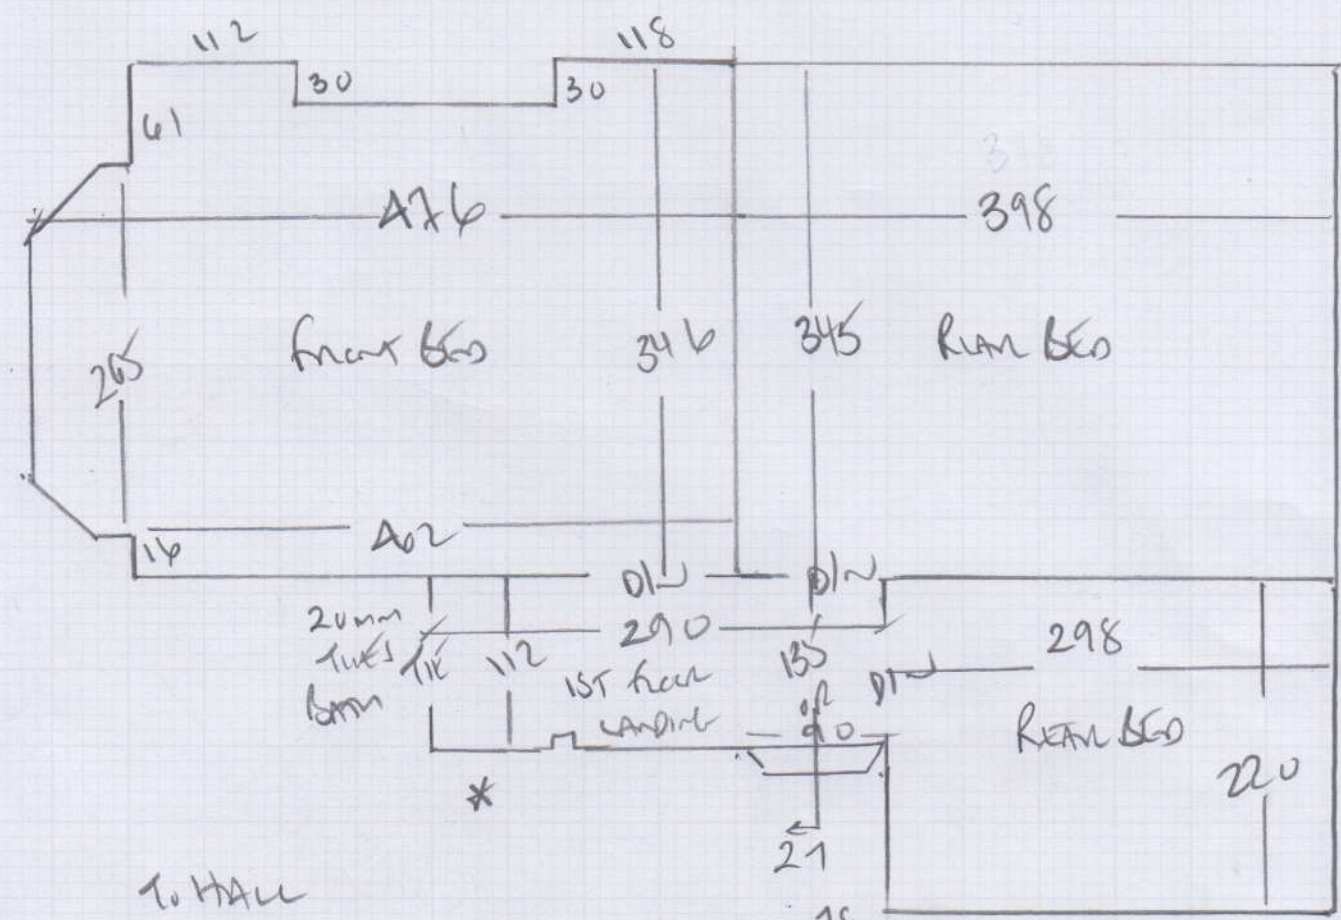 112
118
30
30
61
476
398
265
FRONT BED
346
345
REAR BED
16
402
D/W
D/W
20mm
TILES
BATH
TIE
112
290
1ST FLOOR
LANDING
135
OR
90
D/W
298
REAR BED
220
*
21
TO HALL